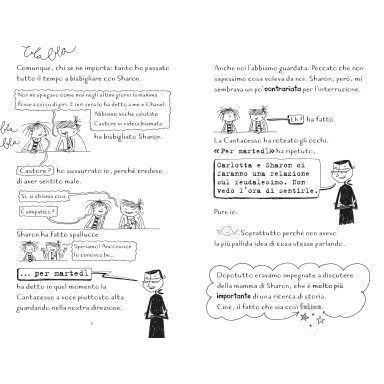 bla bla
Comunque, chi se ne importa: tanto ho passato
tutto il tempo a bisbigliare con Sharon.
Non mi spiegano come mai negli ultimi giorni la mamma
fosse così su di giri. E ieri sera lo ha detto a me e Chanel.
Abbiamo anche salutato
Castore in videochiamata
ha bisbigliato Sharon.
bla
bla
Castore?
ho sussurrato io, perché credevo
di aver sentito male.
Sì, si chiama così.
È simpatico?
Sharon ha fatto spallucce.
Speriamo! Ancora non
lo conosco be...
... per martedì
ha detto in quel momento la
Cantacesso a voce piuttosto alta
guardando nella nostra direzione.
Anche noi l'abbiamo guardata. Peccato che non
sapessimo cosa voleva da noi. Sharon, però, mi
sembrava un po' contrariata per l'interruzione.
Eh?
ha fatto.
La Cantacesso ha roteato gli occhi.
«Per martedì» ha ripetuto.
Carlotta e Sharon ci
faranno una relazione
sul feudalesimo. Non
vedo l'ora di sentirle.
Pure io.
Soprattutto perché non avevo
la più pallida idea di cosa stesse parlando.
Dopotutto eravamo impegnate a discutere
della mamma di Sharon, che è molto più
importante di una ricerca di storia.
Cioè, il fatto che sia così felice.